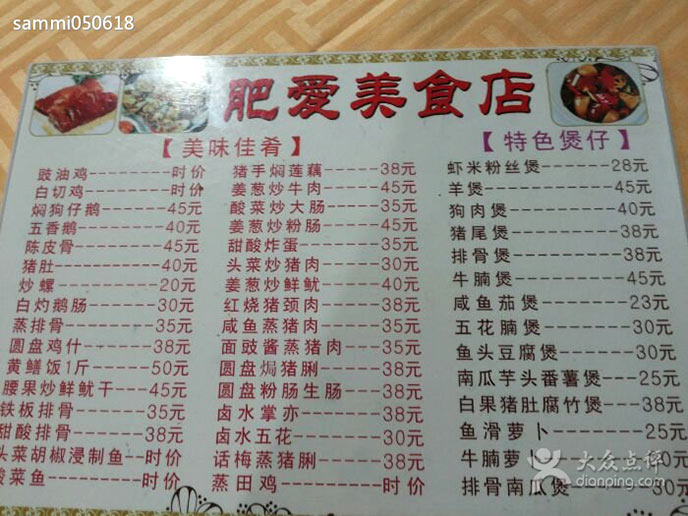 sammi050618
肥爱美食店
【美味佳肴】
豉油鸡--------时价
白切鸡--------时价
焖狗仔鹅------45元
五香鹅--------40元
陈皮骨--------45元
猪肚----------40元
炒螺----------20元
白灼鹅肠------30元
蒸排骨--------35元
圆盘鸡什------38元
黄鳝饭1斤-----50元
腰果炒鲜鱿干---45元
铁板排骨------35元
甜酸排骨------38元
头菜胡椒浸制鱼--时价
酸菜鱼--------时价
猪手焖莲藕-----38元
姜葱炒牛肉-----45元
酸菜炒大肠-----35元
姜葱炒粉肠-----45元
甜酸炸蛋------35元
头菜炒猪肉-----30元
姜葱炒鲜鱿-----40元
红烧猪颈肉-----38元
咸鱼蒸猪肉-----35元
面豉酱蒸猪肉----35元
圆盘焗猪脷-----38元
圆盘粉肠生肠----38元
卤水掌亦------38元
卤水五花------30元
话梅蒸猪脷-----38元
蒸田鸡--------时价
【特色煲仔】
虾米粉丝煲------28元
羊煲----------45元
狗肉煲--------40元
猪尾煲--------38元
排骨煲--------38元
牛腩煲--------45元
咸鱼茄煲------23元
五花腩煲------30元
鱼头豆腐煲-----30元
南瓜芋头番薯煲---25元
白果猪肚腐竹煲---38元
鱼滑萝卜------25元
牛腩萝 0元
排骨南瓜煲-----30元
大众点评
dianping.com